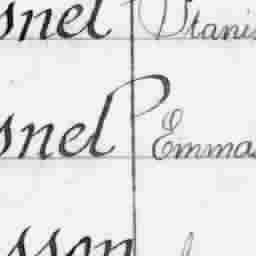 snel Stanis
snel Emma
sson